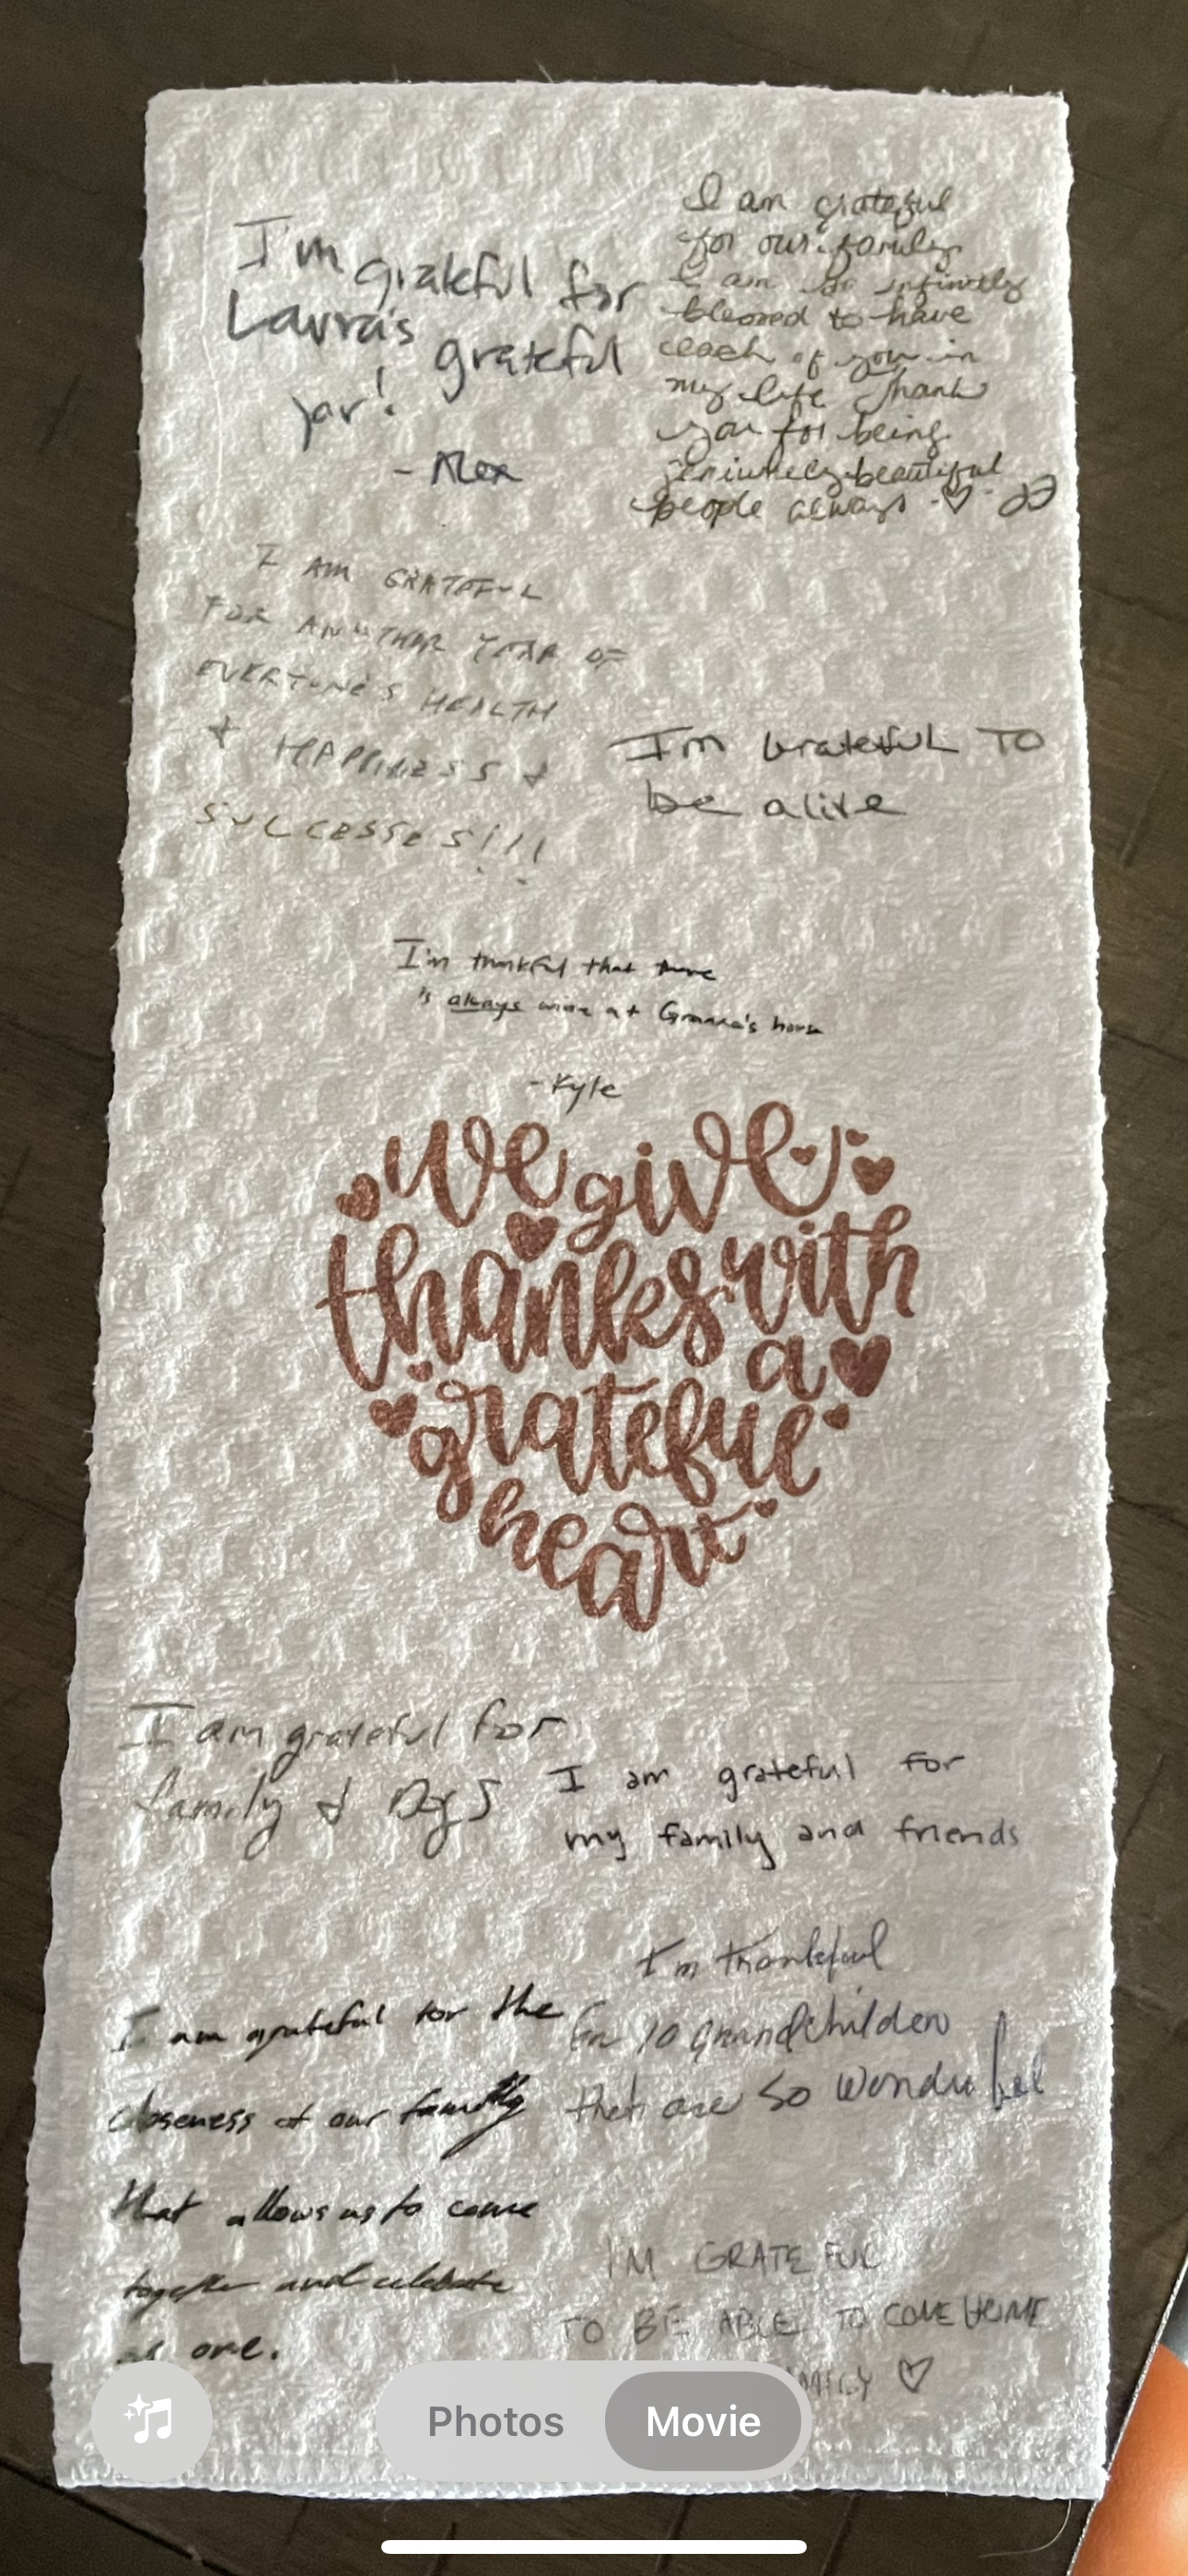 I'm grateful for
Laura's grateful
jar!
- Alex
I am grateful
for our family.
I am so infinitely
blessed to have
each of you in
my life Thank
you for being
geniunely beautiful
people always
I AM GRATEFUL
FOR ANOTHER YEAR OF
EVERYONE'S HEALTH
+ HAPPINESS +
SUCCESSES!!!
I'm Grateful To
be alive
I'm thankful that there
is always wine at Gramma's house
- Kyle
we give
thanks with
a
grateful
heart
I am grateful for
family & Dogs
I am grateful for
my family and friends
I am grateful for the
closeness of our family
that allows us to come
together and celebrate
as one.
I'm thankful
for 10 Grandchildren
that are so wonderful
I'M GRATEFUL
TO BE ABLE TO COME HOME
FAMILY
Photos
Movie